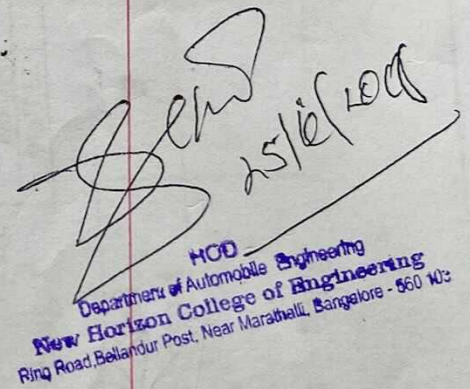 25/6/2018
HOD
Department of Automobile Engineering
New Horizon College of Engineering
Ring Road,Bellandur Post, Near Marathalli, Bangalore - 560 103